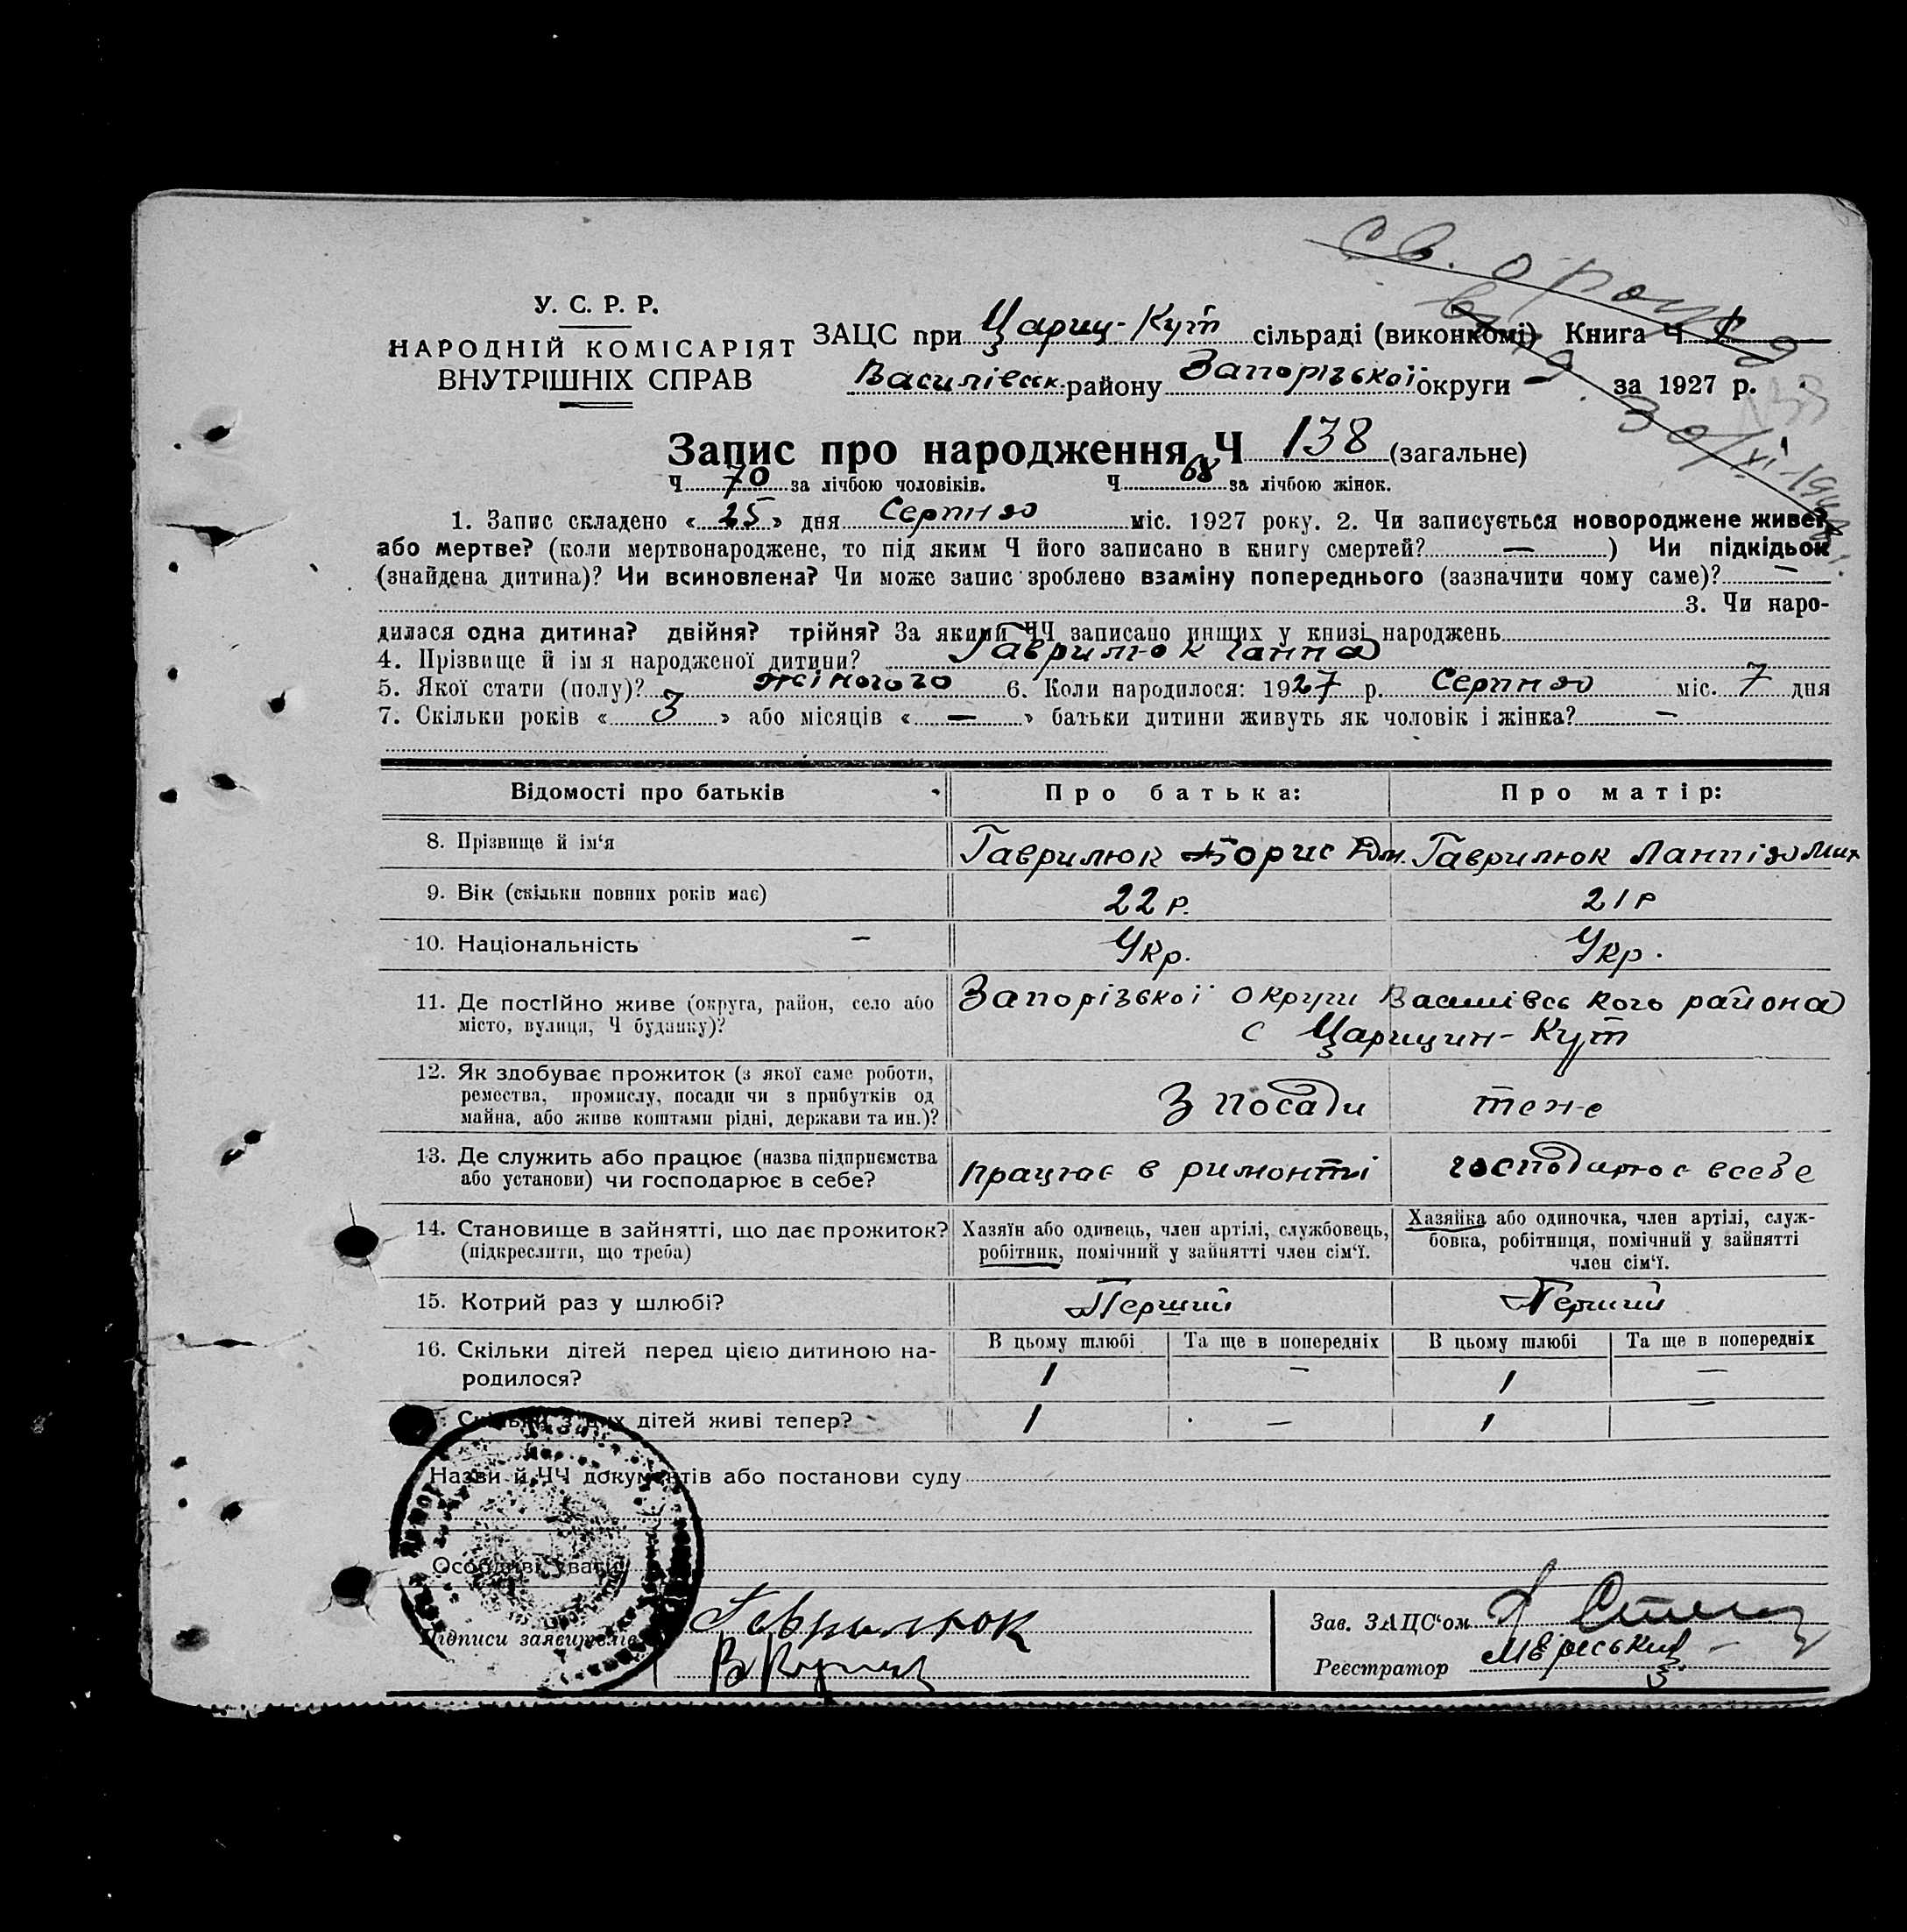 св. о рожд
У. С. Р. Р.
НАРОДНІЙ КОМІСАРІЯТ
ВНУТРІШНІХ СПРАВ
ЗАЦС при Цариц-Кут сільраді (виконкомі) Книга Ч 1
Василівськ. району Запорізької округи за 1927 р.
Запис про народження Ч 138 (загальне)
Ч 70 за лічбою чоловіків. Ч 68 за лічбою жінок.
1. Запис складено « 25 » дня Серпня міс. 1927 року. 2. Чи записується новороджене живе?
або мертве? (коли мертвонароджене, то під яким Ч його записано в книгу смертей? — ) Чи підкідьок
(знайдена дитина)? Чи всиновлена? Чи може запис зроблено взаміну попереднього (зазначити чому саме)? —
3. Чи наро-
дилася одна дитина? двійня? трійня? За якими ЧЧ записано инших у книзі народжень
4. Прізвище й ім я народженої дитини? Гаврилюк Ганна
5. Якої стати (полу)? жіночого 6. Коли народилося: 1927 р. Серпня міс. 7 дня
7. Скільки років « 3 » або місяців « — » батьки дитини живуть як чоловік і жінка? —
Відомості про батьків Про батька: Про матір:
8. Прізвище й ім‘я Гаврилюк Борис Дм. Гаврилюк Лампія Мих
9. Вік (скільки повних років має) 22 р. 21 р
10. Національність — Укр. Укр.
11. Де постійно живе (округа, район, село або Запорізької округи Василівського района
місто, вулиця, Ч будинку)? с Царицин-Кут
12. Як здобуває прожиток (з якої саме роботи,
ремества, промислу, посади чи з прибутків од З посади теж
майна, або живе коштами рідні, держави та ин.)?
13. Де служить або працює (назва підприємства працює в римонті господарює всебе
або установи) чи господарює в себе?
14. Становище в зайнятті, що дає прожиток? Хазяїн або одинець, член артілі, службовець, Хазяйка або одиночка, член артілі, служ-
(підкреслити, що треба) робітник, помічний у зайнятті член сім‘ї. бовка, робітниця, помічний у зайнятті
член сім‘ї.
15. Котрий раз у шлюбі? Перший Перший
16. Скільки дітей перед цією дитиною на- В цьому шлюбі Та ще в попередніх В цьому шлюбі Та ще в попередніх
родилося? 1 — 1 —
Скільки з них дітей живі тепер? 1 — 1 —
Назви й ЧЧ документів або постанови суду
Особливі уваги
Підписи заявителів Гаврилюк
Зав. ЗАЦС‘ом
Реєстратор